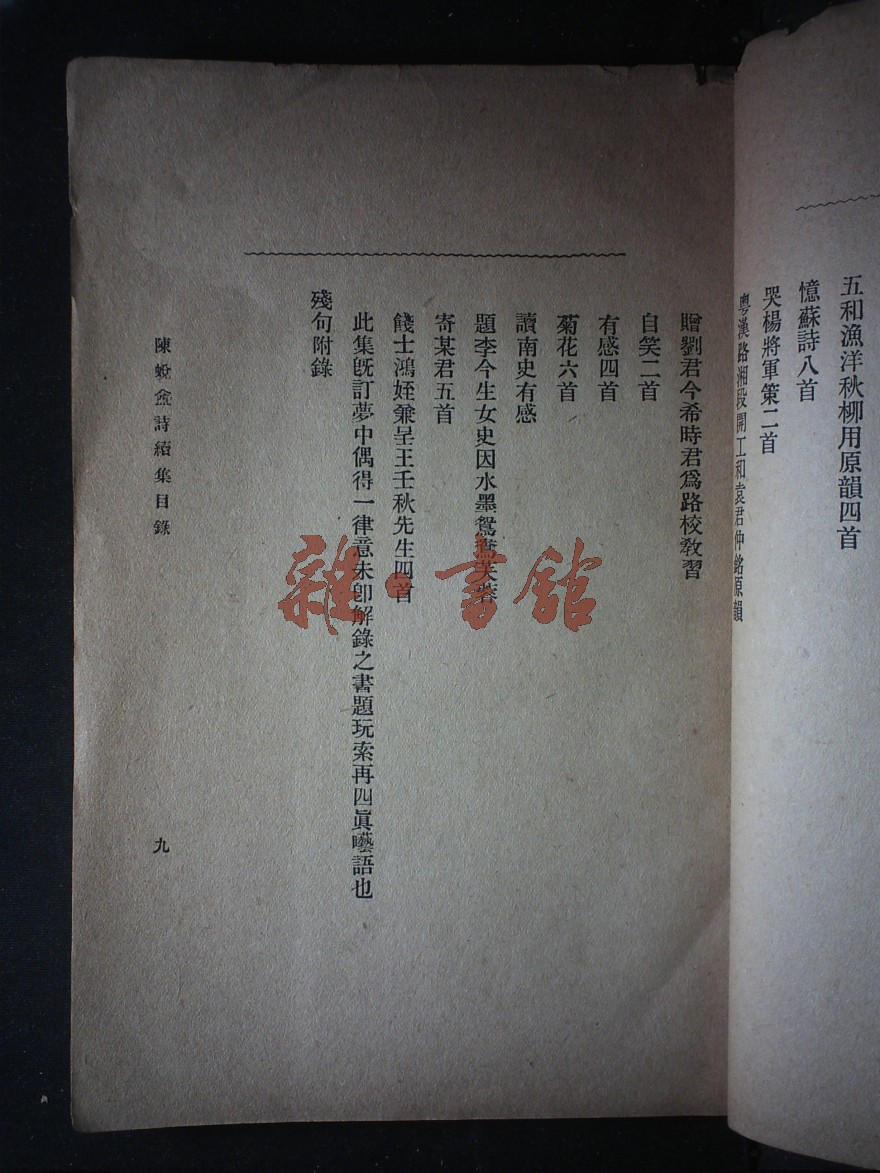 五和漁洋秋柳用原韻四首
憶蘇詩八首
哭楊將軍策二首
粵漢路湘段開工和袁君仲銘原韻
贈劉君今希時君爲路校敎習
自笑二首
有感四首
菊花六首
讀南史有感
題李今生女史因水墨鴛鴦芙蓉
寄某君五首
餞士鴻姪兼呈王壬秋先生四首
此集旣訂夢中偶得一律意未卽解錄之書題玩索再四眞囈語也
殘句附錄
陳蛻盦詩續集目錄
九
雜·書館